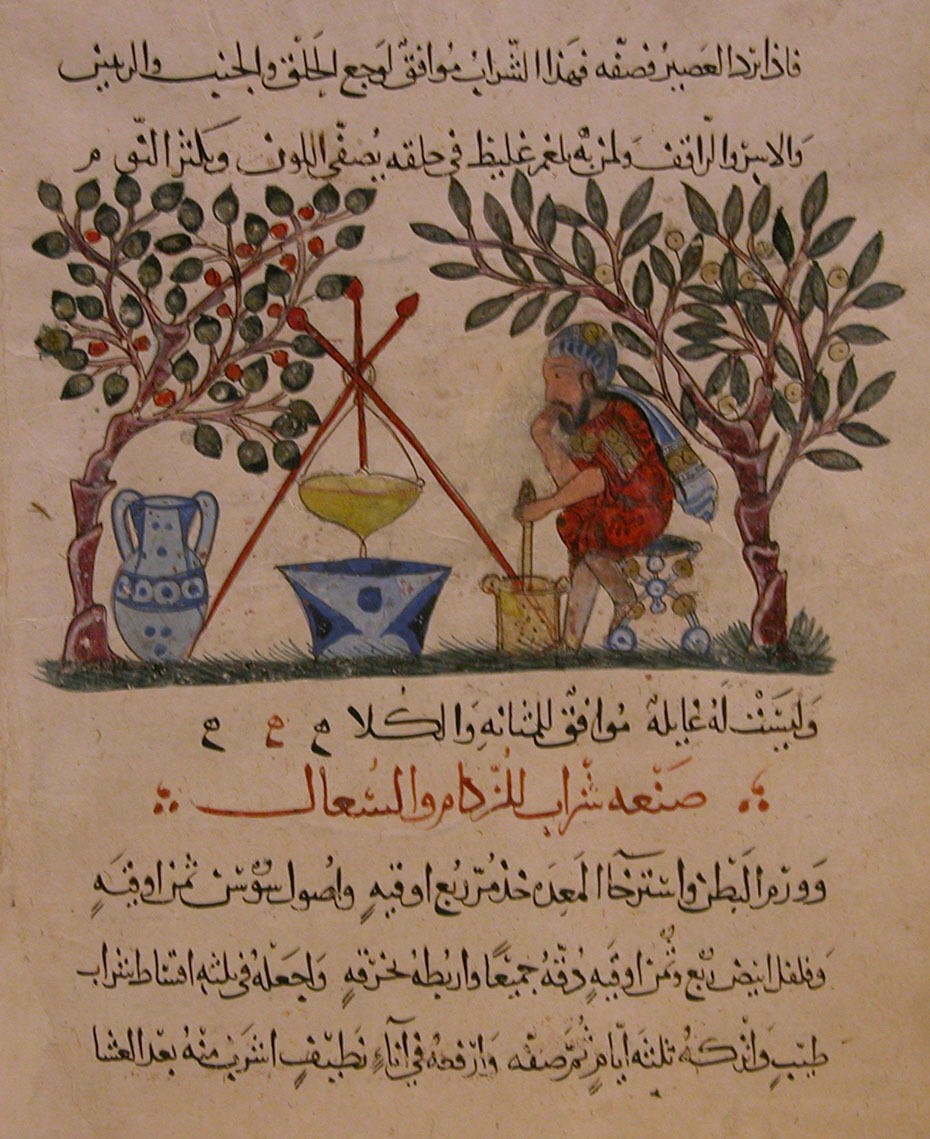 فاذا برد العصير فصفّه فهذا الشراب موافق لوجع الحلق والجنب والريتين
والاسر والراقف ولمن به بلغم غليظ في حلقه يصفّي اللون ويكثر النوم
وليست له غايلة موافق للمثانه والكلا
صنعه شراب للزكام والسعال
وورم البطن واسترخا المعده خذ مرّ ربع اوقيه واصول سوسن ثمن اوقيه
وفلفل ابيض ربع وثمن اوقيه دقّه جميعًا واربطه بخرقه واجعله في ثلثه اقساط شراب
طيّب واتركه ثلثه أيام ثم صفّه وارفعه في آناء نظيف اشرب منه بعد العشا